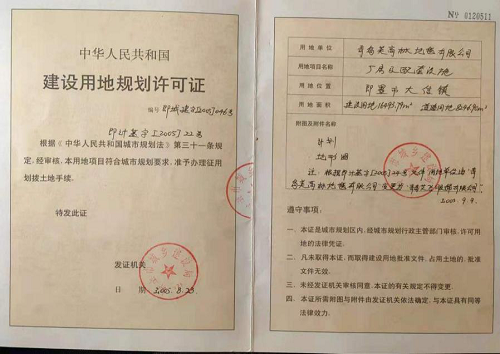 中华人民共和国
建设用地规划许可证
编号 即城建字[2005]046号
即计基字[2005]22号
根据《中华人民共和国城市规划法》第三十一条规
定,经审核,本用地项目符合城市规划要求,准予办理征用
划拨土地手续。
特发此证
发证机关
日 期 2005.8.23
Nº 0120511
用地单位 青岛 地毯有限公司
用地项目名称 厂房及配套设施
用地位置 即墨市大信镇
用地面积 建设用地
附图及附件名称
计划
地形图
注:根据即计基字[2005]24号文件
有限公司"变更为
2005.9.9.
遵守事项:
一、本证是城市规划区内,经城市规划行政主管部门审核,许可用
地的法律凭证。
二、凡未取得本证,而取得建设用地批准文件、占用土地的,批准
文件无效。
三、未经发证机关审核同意,本证的有关规定不得变更。
四、本证所需附图与附件由发证机关依法确定,与本证具有同等
法律效力。